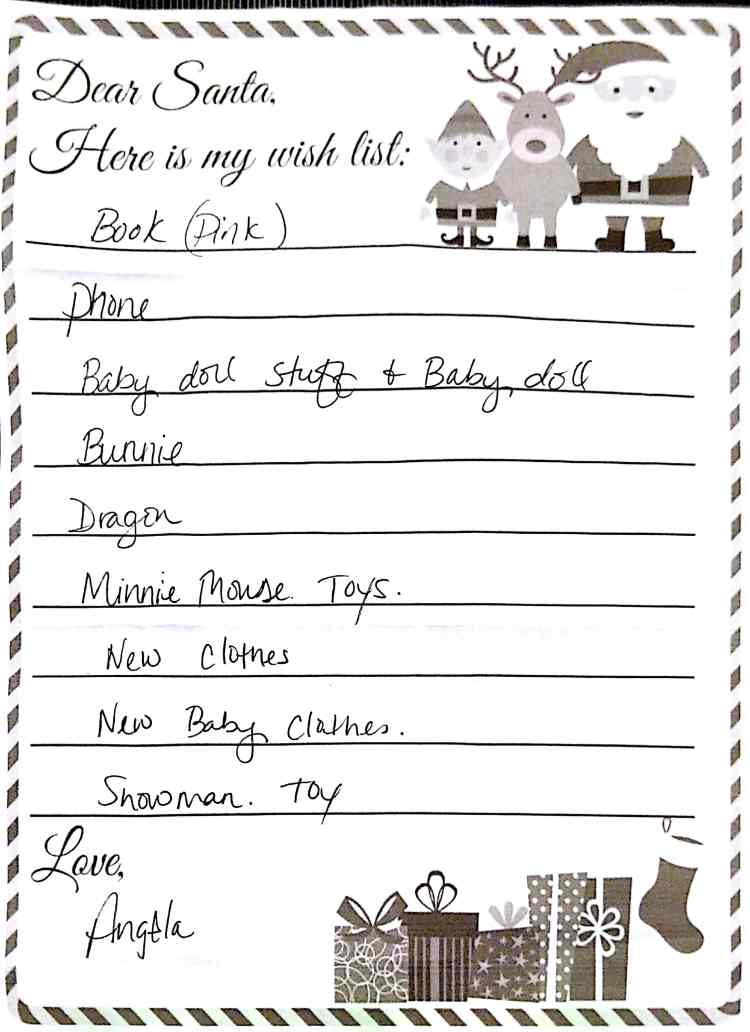 Dear Santa,
Here is my wish list:
Book (Pink)
Phone
Baby doll stuff & Baby doll
Bunnie
Dragon
Minnie Mouse. Toys.
New Clothes
New Baby Clothes.
Snowman. Toy
Love,
Angela